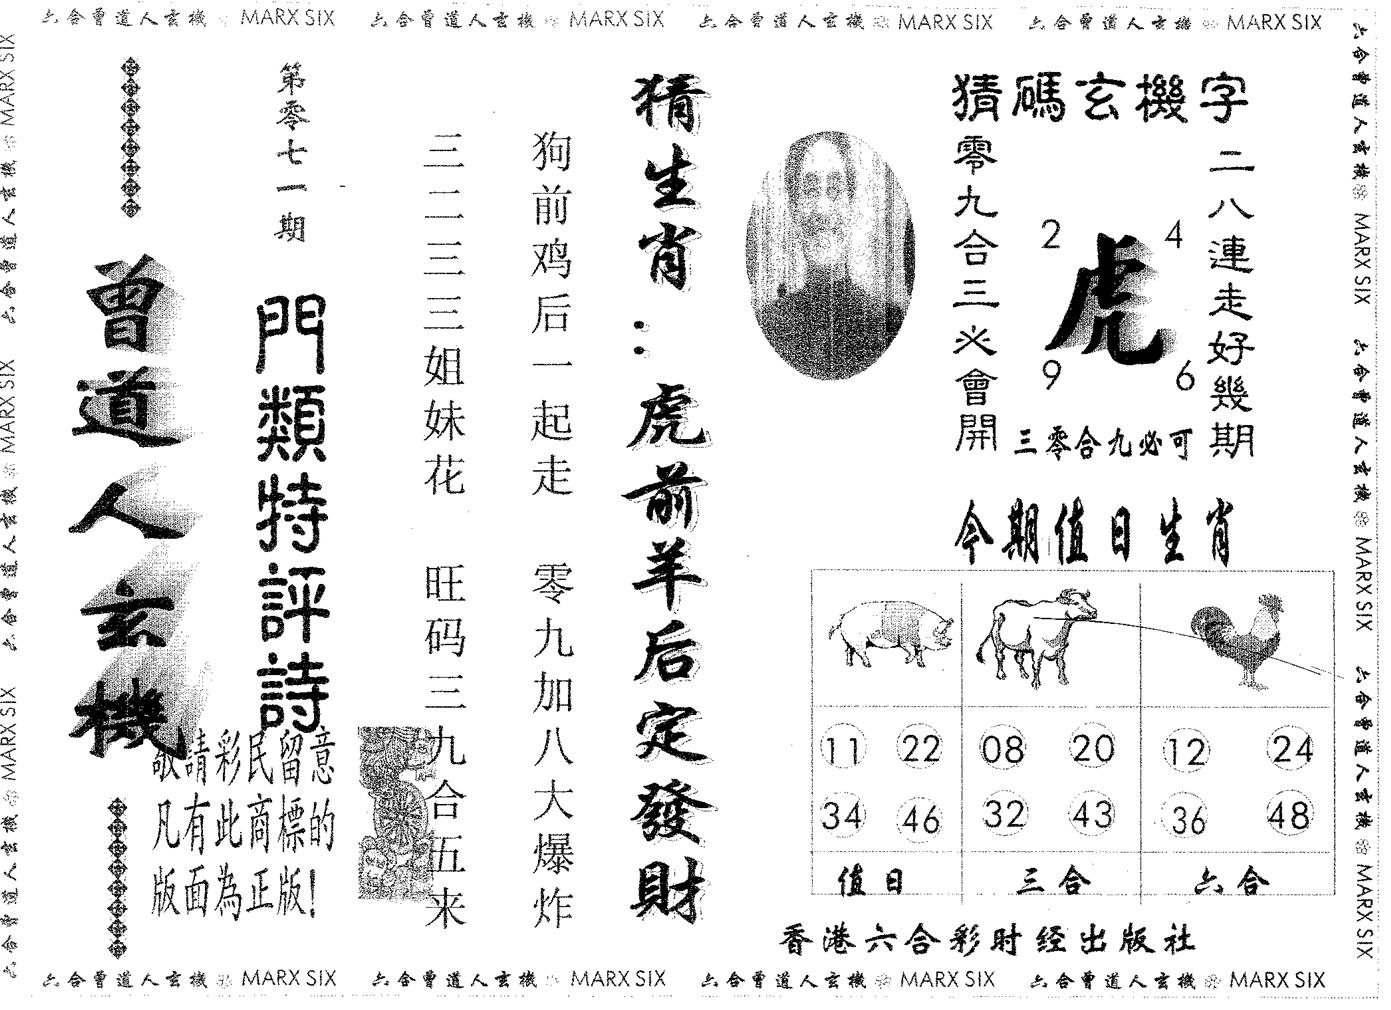 六合曾道人玄機 MARX SIX 六合曾道人玄機 MARX SIX 六合曾道人玄機 MARX SIX 六合曾道人玄機 MARX SIX
六合曾道人玄機 MARX SIX 六合曾道人玄機 MARX SIX 六合曾道人玄機 MARX SIX
猜碼玄機字
二八連走好幾期
零九合三必會開
2
4
虎
9
6
三零合九必可
今期值日生肖
11 22 08 20 12 24
34 46 32 43 36 48
值日 三合 六合
香港六合彩时经出版社
猜生肖：虎前羊后定發財
狗前鸡后一起走 零九加八大爆炸
三二三三姐妹花 旺码三九合五来
第零七一期
門類特評詩
曾道人玄機
敬請彩民留意
凡有此商標的
版面為正版！
六合曾道人玄機 MARX SIX 六合曾道人玄機 MARX SIX 六合曾道人玄機 MARX SIX
六合曾道人玄機 MARX SIX 六合曾道人玄機 MARX SIX 六合曾道人玄機 MARX SIX 六合曾道人玄機 MARX SIX